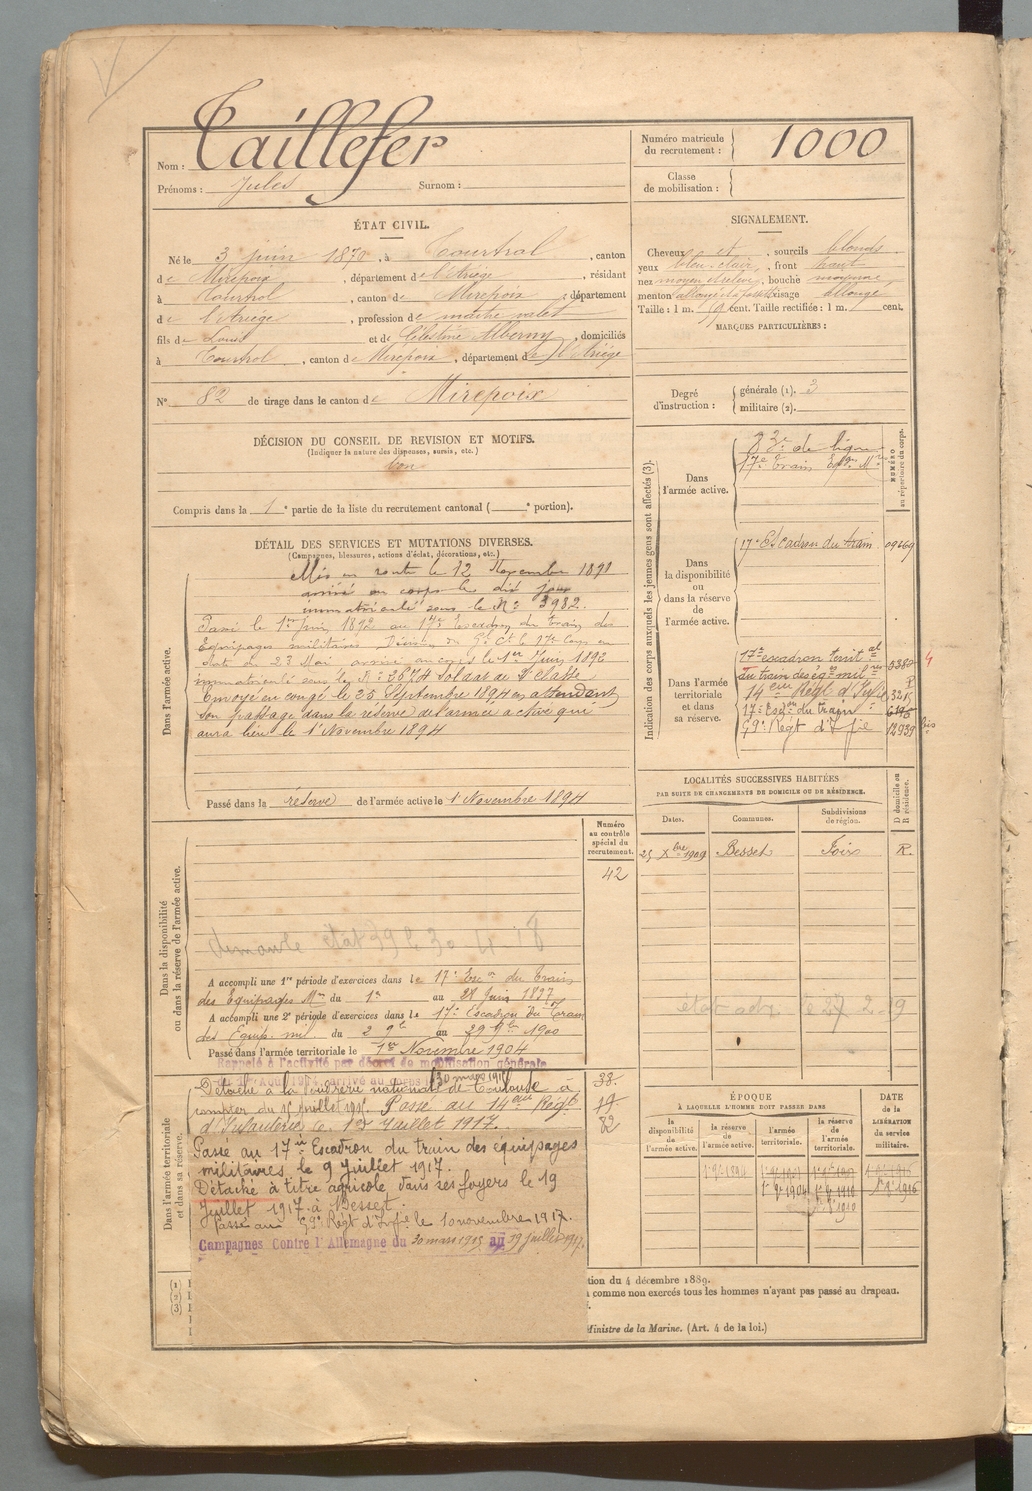 Nom : Taillefer
Prénoms : Jules Surnom :
Numéro matricule du recrutement : 1000
Classe de mobilisation :
ÉTAT CIVIL.
Né le 3 juin 1870, à Tourtrol, canton
de Mirepoix, département de l'Ariège, résidant
à Tourtrol, canton de Mirepoix, département
de l'Ariège, profession de maître valet
fils de Louis et de Célestine Alberny, domiciliés
à Tourtrol, canton de Mirepoix, département de l'Ariège
N° 82 de tirage dans le canton de Mirepoix
SIGNALEMENT.
Cheveux et, sourcils blonds
yeux bleu clair, front haut
nez moyen, bouche moyenne
menton visage allongé
Taille : 1 m. 59 cent. Taille rectifiée : 1 m. cent.
MARQUES PARTICULIÈRES :
Degré d'instruction : générale (1). 3
militaire (2).
DÉCISION DU CONSEIL DE REVISION ET MOTIFS.
(Indiquer la nature des dispenses, sursis, etc.)
bon
Compris dans la 1e partie de la liste du recrutement cantonal ( e portion).
DÉTAIL DES SERVICES ET MUTATIONS DIVERSES.
(Campagnes, blessures, actions d'éclat, décorations, etc.)
Dans l'armée active.
Mis en route le 12 Novembre 1891
arrivé au corps le dit jour
immatriculé sous le N° 3982.
Passé le 1er Juin 1892 au 17e Escadron du train des
Équipages militaires Décision du Gal Ct le 17e Corps en
date du 23 Mai arrivé au corps le 1er Juin 1892
immatriculé sous le N° 2674 Soldat de 2e classe
Envoyé en congé le 25 Septembre 1894 en attendant
son passage dans la réserve de l'armée active qui
aura lieu le 1er Novembre 1894
Passé dans la réserve de l'armée active le 1er Novembre 1894
Indication des corps auxquels les jeunes gens sont affectés (3).
NUMÉRO au répertoire du corps.
Dans l'armée active.
83e de ligne
17e Train Eqges Mres
Dans la disponibilité ou dans la réserve de l'armée active.
17e Escadron du train
Dans l'armée territoriale et dans sa réserve.
17e escadron territal
du train des éqges milres
14eme Régt d'Infie 3215
17e Escon du train
59e Régt d'Infie 12939 bis
LOCALITÉS SUCCESSIVES HABITÉES
PAR SUITE DE CHANGEMENTS DE DOMICILE OU DE RÉSIDENCE.
Dates. Communes. Subdivisions de région. D domicile ou R résidence.
25 Xbre 1909 Besset Foix R.
Dans la disponibilité ou dans la réserve de l'armée active.
Numéro au contrôle spécial du recrutement.
42
A accompli une 1re période d'exercices dans le 17e Esc on du Train
des Equipages Mres du 1er au 28 Juin 1897
A accompli une 2e période d'exercices dans le 17e Escadron du Train
des Equip. mil. du 2 9bre au 29 9bre 1900
Passé dans l'armée territoriale le 1er Novembre 1904
Dans l'armée territoriale et dans sa réserve.
Rappelé à l'activité par décret de mobilisation générale
du 1er Août 1914, arrivé au corps le 30 mars 1915
Détaché à la poudrerie nationale de Toulouse à
compter du 15 juillet 1915. Passé au 14eme Régt
d'Infanterie le 1er Juillet 1917.
Passé au 17e Escadron du train des équipages
militaires, le 9 Juillet 1917.
Détaché à titre agricole dans ses foyers le 19
Juillet 1917 à Besset.
Passé au 59e Régt d'Infie le 10 novembre 1917.
Campagnes Contre l'Allemagne du 30 mars 1915 au 19 juillet 1917.
38.
32
ÉPOQUE
À LAQUELLE L'HOMME DOIT PASSER DANS
DATE de la LIBÉRATION du service militaire.
la disponibilité de l'armée active. la réserve de l'armée active. l'armée territoriale. la réserve de l'armée territoriale.
(1)
(2)
(3)
tion du 4 décembre 1889.
comme non exercés tous les hommes n'ayant pas passé au drapeau.
Ministre de la Marine. (Art. 4 de la loi.)